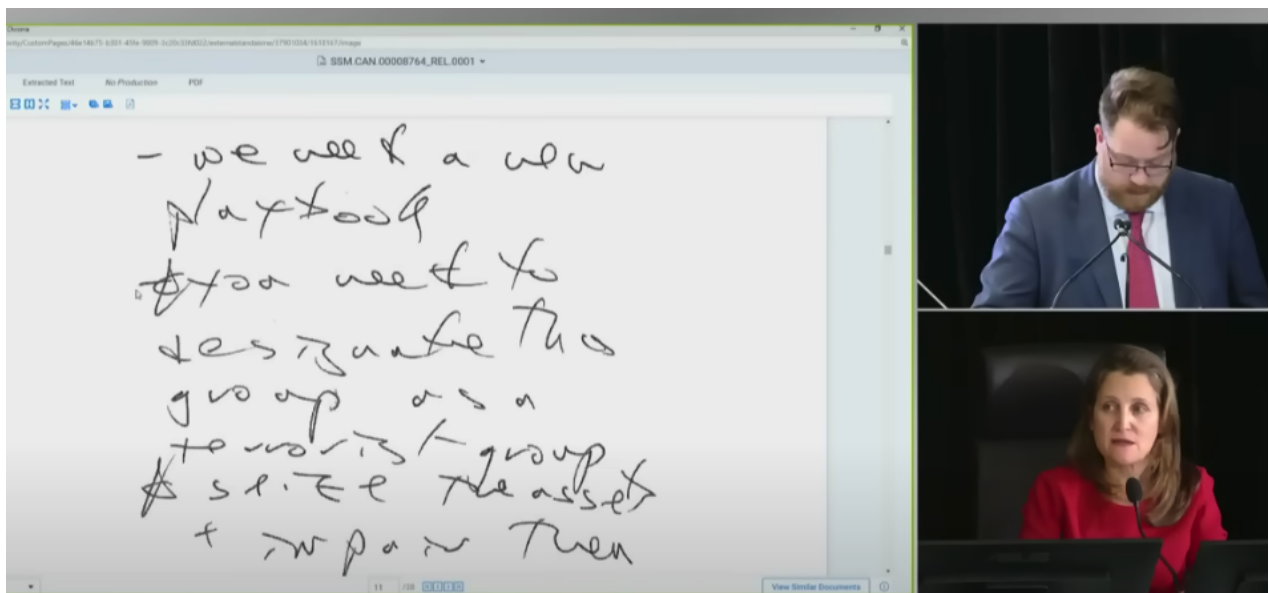 Chrome
SSM.CAN.00008764_REL.0001
Extracted Text No Production PDF
- we need a new
playbook
you need to
designate this
group as a
terrorist group
seize the assets
+ impair them
11 /28
View Similar Documents